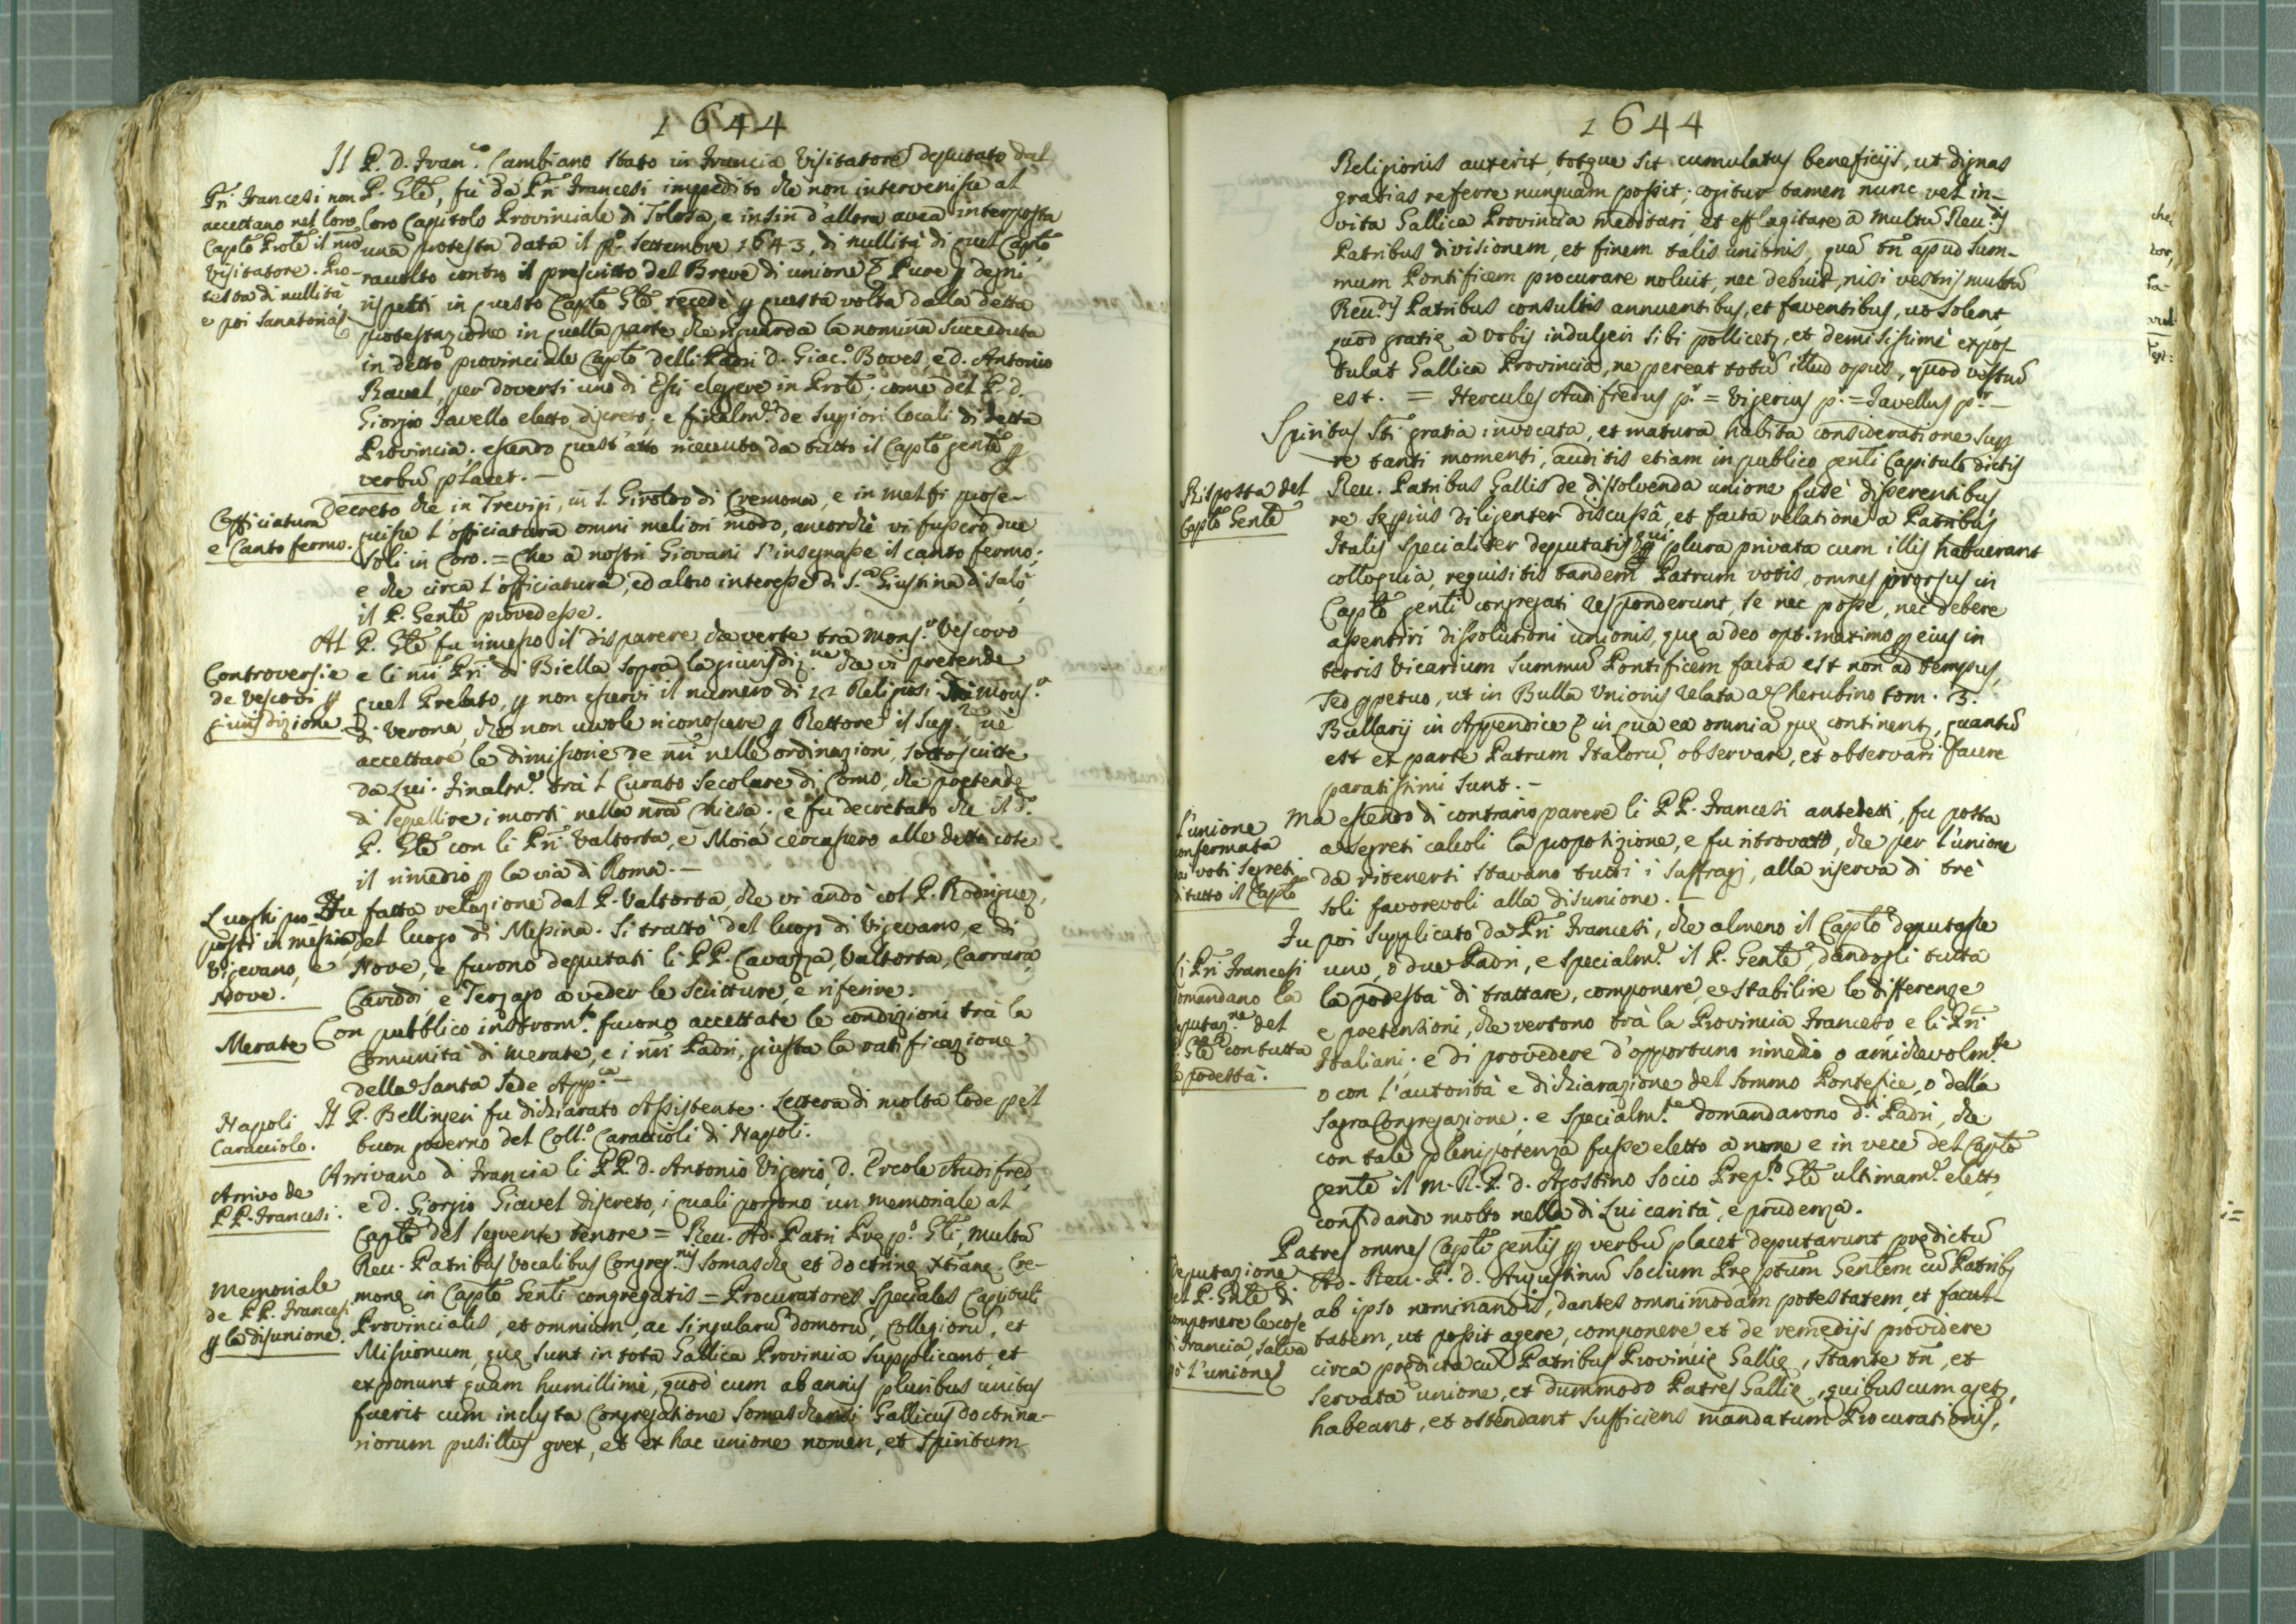 1644
Il P. D. Fran.co Cambiano stato in Francia Visitatore deputato dal
P. Gñle, fù da Pñri Francesi impedito che non intervenisse al
loro Capitolo Provinciale di Tolosa, e insin d'allora avea interposta
una protesta data il p.o Settembre 1643, di nullità di quel Caplo
raunlto contro il prescritto del Breve di unione. Pure p degni
rispetti in questo Caplo Gñle recede p questa volta dalla detta
protestazione in quella parte che riguarda la nomina succeduta
in detto provinciale Caplo delli Padri D. Giac.o Boves, e D. Antonio
Ravel, per doversi uno di Essi elegere in Prole; come del P. D.
Giorgio Javello eletto discreto, e finalm.e de Supriori locali di detta
Provincia; essendo quest'atto ricevuto da tutto il Caplo genle p
verbũ placet. —
Pñri Francesi non
accettano nel loro
Caplo Prole il nrõ
Visitatore. Pro-
testa di nullità,
e poi Sanatoria
Decreto che in Trevigi, in S. Giroldo di Cremona, e in Melfi prose-
guisse l'officiatura omni meliori modo, ancorchè vi fussero due
soli in Coro. = Che a nostri Giovani s'insegnasse il canto fermo;
e che circa l'officiatura, ed altro interesse di S.a Giustina di Salò
il P. Genle provedesse.
L'officiatura
e Canto fermo.
Al P. Gñle fu rimesso il disparere che verte trà Mons.r Vescovo
e li nrĩ Pñri di Biella sopra la giurisdiz.ne che vi pretende
quel Prelato, p non esservi il numero di 12 Religiosi. Trà Mons.r
di Verona, che non vuole riconoscere p Rettore il Sup.r nè
accettare le dimissorie de nrĩ nelle ordinazioni, sottoscritte
da Lui. Finalm.e trà 'l Curato secolare di Como, che pretende
di sepellire i morti nella nrã Chiesa; e fu decretato che il d.o
P. Gñle con li Pñri Valtorta, e Moia cercassero alle dette cose
il rimedio p la via di Roma. —
Controversie
de Vescovi p
giurisdizione.
Fu fatta relazione dal P. Valtorta, che vi andò col P. Rodriguez,
del luogo di Messina. Si trattò del luogo di Vigevano, e di
Nove, e furono deputati li PP. Cavazza, Valtorta, Carrara,
Caroddi, e Terzago a veder le scritture, e riferire.
Luoghi pro-
posti in Messina
Vigevano, e
Nove.
Con pubblico instrom.to furono accettate le condizioni trà la
Comunità di Merate, e i nrĩ Padri, giusta la ratificazione
della Santa Sede App.ca —
Merate
Il P. Bellingeri fu dichiarato Assistente. Lettera di molta lode pel
buon governo del Coll.o Caraccioli di Napoli.
Napoli
Caracciolo.
Arrivano di Francia li PP. D. Antonio Vigerio, D. Ercole Audifred,
e D. Giorgio Giavel discreto, i quali porgono un memoriale al
Caplo del seguente tenore = Reu. Ad. Patri Prep.o Gli, multũ
Reu. Patribus Vocalibus Congreg.nis Somasche et doctrine Xtiane. Cre-
mone in Caplo Genli congregatis = Procuratores Speciales Capituli
Provincialis, et omnium, ac singularũ domorũ, Collegiorũ, et
Missionum, que sunt in tota Gallica Provincia supplicant, et
exponunt quam humillimè, quod cum ab annis pluribus unitus
fuerit cum inclyta Congregatione Somaschensi Gallicus doctrina-
riorum pusillus grex, et ex hac unione nomen, et Spiritum
Arrivo de
PP. Francesi.
Memoriale
de PP. Francesi
p la disunione.
1644
Religionis auxerit, totque sit cumulatus beneficijs, ut dignas
gratias referre nunquam possit; cogitur tamen nunc vel in-
vita Gallica Provincia meditari, et efflagitare a multũ Reu.dis
Patribus divisionem, et finem talis unionis, quã tñ apud Sum-
mum Pontificem procurare noluit, nec debuit, nisi vestris multũ
Reu.dis Patribus consultis annuentibus, et faventibus, ut solent,
quod gratie a vobis indulgeri sibi pollicetr, et demisissimè expos
tulat Gallica Provincia, ne pereat totũ illud opus, quod vestrũ
est. = Hercules Audifredus pr. = Vigerius pr. = Javellus pr. —
Spiritus Sti gratia invocata, et matura habita consideratione sup
re tanti momenti, auditis etiam in publico genli Capitulo dictis
Reu. Patribus Gallis de dissolvenda unione fusè disserentibus,
re sepius diligenter discussâ, et facta relatione a Patribus
Italis specialiter deputatis, qui plura privata cum illis habuerant
colloquia, requisitis tandem Patrum votis, omnes prorsus in
Caplo genli congregati responderunt, se nec posse, nec debere
assentiri dissolutioni unionis, que a deo opt. maximo p eius in
terris Vicarium Summũ Pontificem facta est non ad tempus,
sed ppetuo, ut in Bulla Unionis relata a Cherubino tom. 3.
Bullarij in Appendice & in qua ea omnia que continentr, quantũ
est ex parte Patrum Italorũ, observare, et observari facere
paratissimi sunt. —
Risposta del
Caplo Genle
Ma essendo di contrario parere li PP. Francesi antedetti, fu posta
a segreti calcoli la proposizione, e fu ritrovato, che per l'unione
da ritenersi stavano tutti i suffragj, alla riserva di trè
soli favorevoli alla disunione. —
L'unione
confermata
voti segreti
di tutto il Caplo
Fu poi supplicato da Pñri Francesi, che almeno il Caplo deputasse
uno, o due Padri, e specialm.e il P. Genle, dandogli tutta
la podestà di trattare, componere, e stabilire le differenze
e pretensioni, che vertono trà la Provincia Francese e li Pñri
Italiani; e di provedere d'opportuno rimedio o amichevolm.te
o con l'autorità e dichiarazione del Sommo Pontefice, o della
Sagra Congregazione; e specialm.te domandarono d.i Padri, che
con tale plenipotenza fusse eletto a nome e in vece del Caplo
genle il M. R. P. D. Agostino Socio Prep.to Gñle ultimam.e eletto
confidando molto nella di Lui carità, e prudenza.
Pñri Francesi
domandano la
deputaz.ne del
P. Gñle con tutta
podestà.
Patres omnes Capli genlis p verbũ placet deputarunt predictũ
Ad. Reu. P. D. Augustinũ Socium Prepositum Genlem cũ Patribs
ab ipso nominandis, dantes omnimodam potestatem, et facul-
tatem, ut possit agere, componere et de remedijs providere
circa predicta cũ Patribus Provincie Gallie, stante tñ, et
servata unione, et dummodo Patres Gallie, quibuscum agetr,
habeant, et ostendant sufficiens mandatum Procurationis,
deputazione
del P. Gñle di
componere le cose
di Francia, salva
l'unione